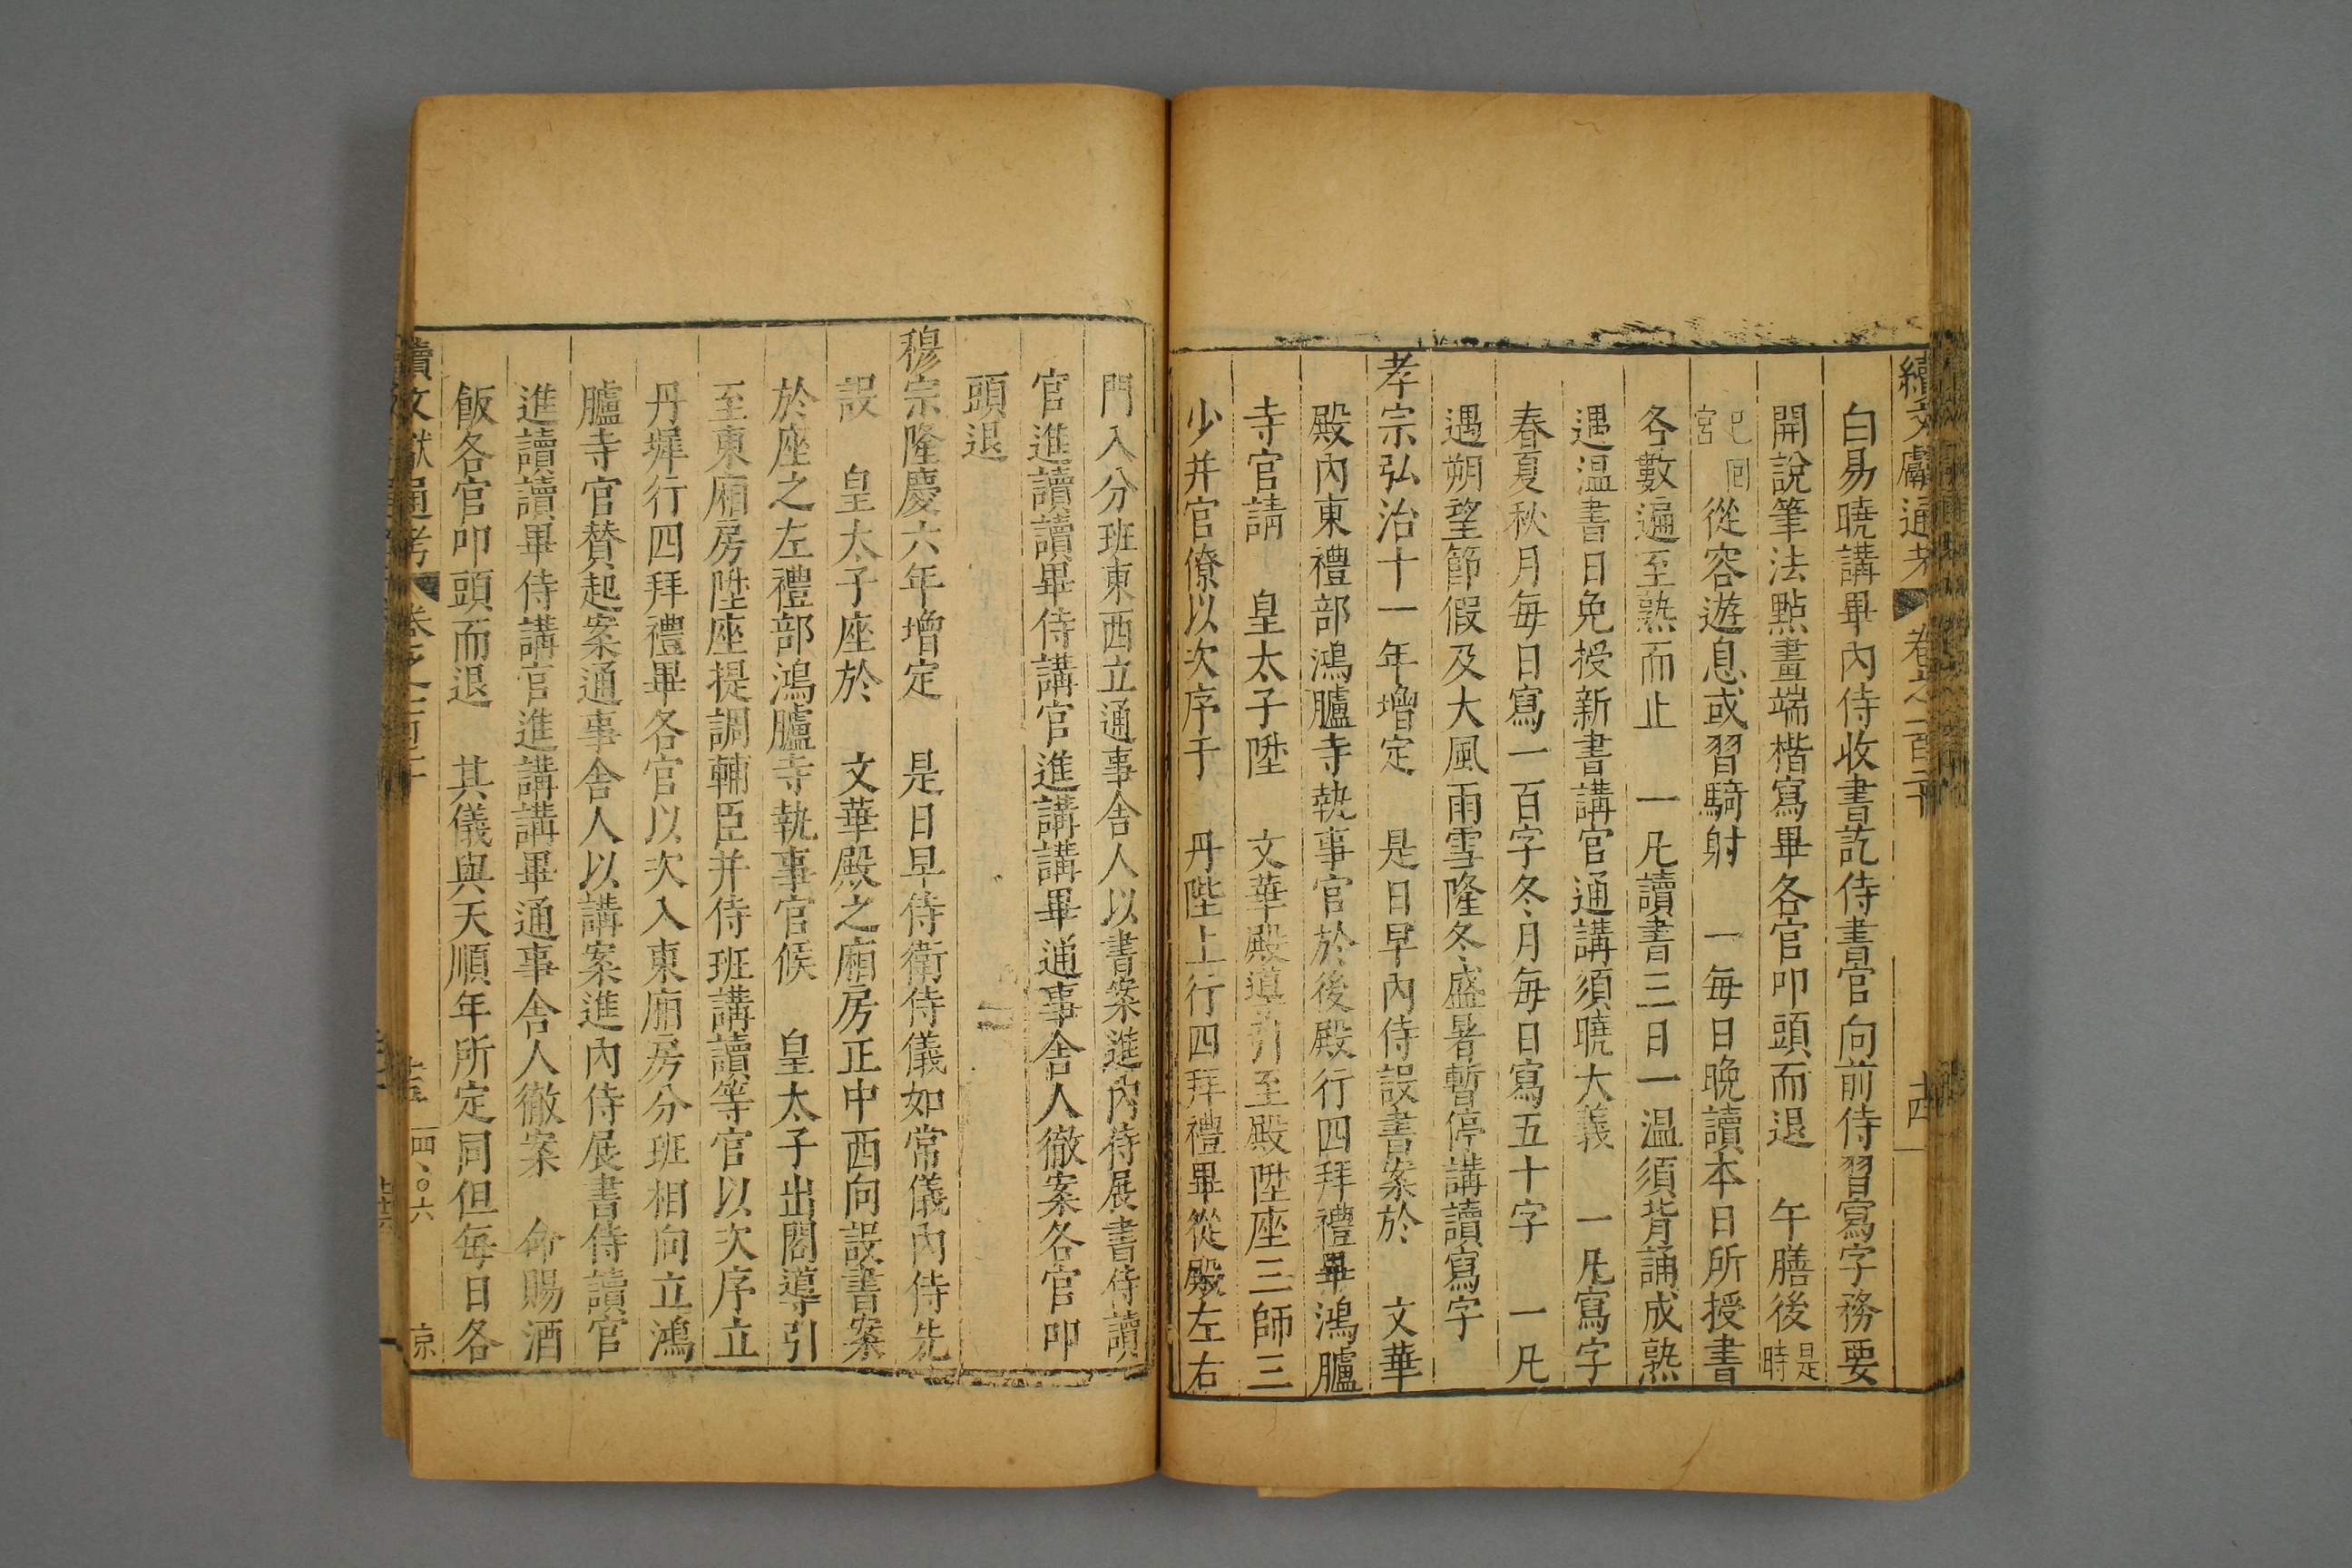 續文獻通考 卷之一百二十 十四
白易曉講畢內侍收書訖侍書官向前侍習寫字務要
開說筆法點畫端楷寫畢各官叩頭而退 午膳後是時
已回宮從容遊息或習騎射 一每日晚讀本日所授書
各數遍至熟而止 一凡讀書三日一温須背誦成熟
遇温書日免授新書講官通講須曉大義 一凡寫字
春夏秋月每日寫一百字冬月每日寫五十字 一凡
遇朔望節假及大風雨雪隆冬盛暑暫停講讀寫字
孝宗弘治十一年增定 是日早內侍設書案於 文華
殿內東禮部鴻臚寺執事官於後殿行四拜禮畢鴻臚
寺官請 皇太子陞 文華殿導引至殿陞座三師三
少并官僚以次序于 丹陛上行四拜禮畢從殿左右
門入分班東西立通事舍人以書案進內侍展書侍讀
官進讀讀畢侍講官進講講畢通事舍人徹案各官叩
頭退
穆宗隆慶六年增定 是日早侍衛侍儀如常儀內侍先
設 皇太子座於 文華殿之廂房正中西向設書案
於座之左禮部鴻臚寺執事官候 皇太子出閣導引
至東廂房陞座提調輔臣并侍班講讀等官以次序立
丹墀行四拜禮畢各官以次入東廂房分班相向立鴻
臚寺官贊起案通事舍人以講案進內侍展書侍讀官
進讀讀畢侍講官進講講畢通事舍人徹案 命賜酒
飯各官叩頭而退 其儀與天順年所定同但每日各
續文獻通考 卷之一百二十 四、〇六 京